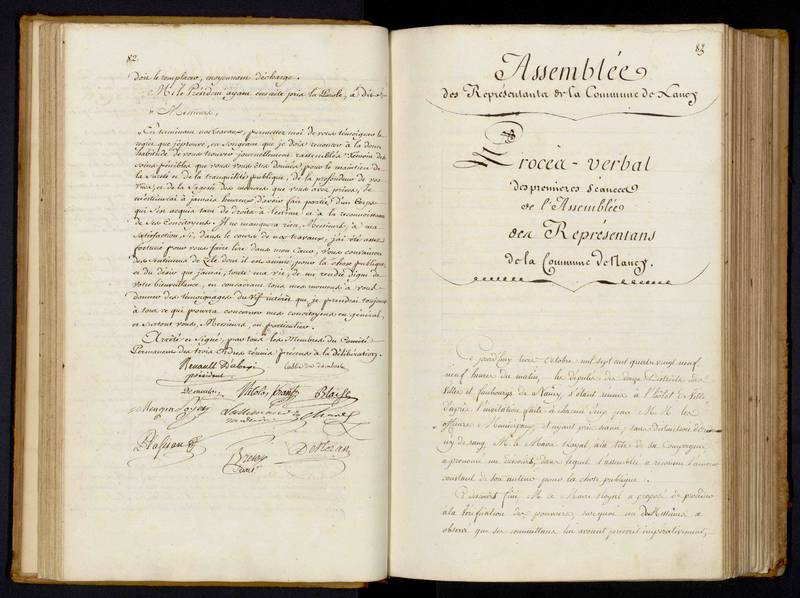 82.
doit le remplacer, moyennant décharge.
M. le Président ayant ensuite pris la Parole, a dit :
" Messieurs,
" En terminant nos travaux, permettez moi de vous témoigner le
regret que j'éprouve, en songeant que je dois renoncer à la douce
habitude de vous trouver journellement rassemblés. Témoin des
soins pénibles que vous vous êtes donnés pour le maintien de
la Sureté et de la tranquilité publique, de la profondeur de vos
Vues, et de la Sagesse des mesures que vous avez prises, je
m'estimerai à jamais heureux d'avoir fait partie d'un Corps
qui s'est acquis tant de droits à l'estime et à la reconnoissance
de ses Concitoyens. Il ne manquera rien, Messieurs, à ma
satisfaction, si, dans le cours de nos travaux, j'ai été assez
fortuné pour vous faire lire dans mon cœur, vous convaincre
des sentimens de Zèle dont il est animé, pour la chose publique,
et du désir que j'aurai, toute ma vie, de me rendre digne de
votre bienveillance, en consacrant tous mes momens à vous
donner des témoignages du Vif intérêt que je prendrai toujours
à tout ce qui pourra concerner mes concitoyens en général,
et surtout vous, Messieurs, en particulier.
Arrêté et Signé, par tous les Membres du Comité
Permanent des trois Ordres réunis, présens à la délibération.
président
Blaise
Mengin
83
Assemblée
des Representants de la Commune de Nancy
Procès-verbal
des premieres Séances
de l'Assemblée
des Représentans
de la Commune de Nancy.
Ce jourd'huy trois Octobre mil sept cent quatre vingt neuf
neuf heures du matin, les députés des douze Districts des
Villes et faubourgs de Nancy, s'étant réunis à l'hôtel de Ville
d'après l'invitation faite à chacun d'eux par M.M. les
Officiers Municipaux et ayant pris séance, sans distinction de
rang, M. le Maire Royal, à la tête de sa Compagnie,
a prononcé un discours, dans lequel l'assemblée a reconnu l'amour
constant de son auteur pour la chose publique.
Ce discours fini, M. le Maire Royal a proposé de procéder
à la vérification des pouvoirs, sur quoi un de Messieurs a
observé que ses commettans lui avoient prescrit impérativement,